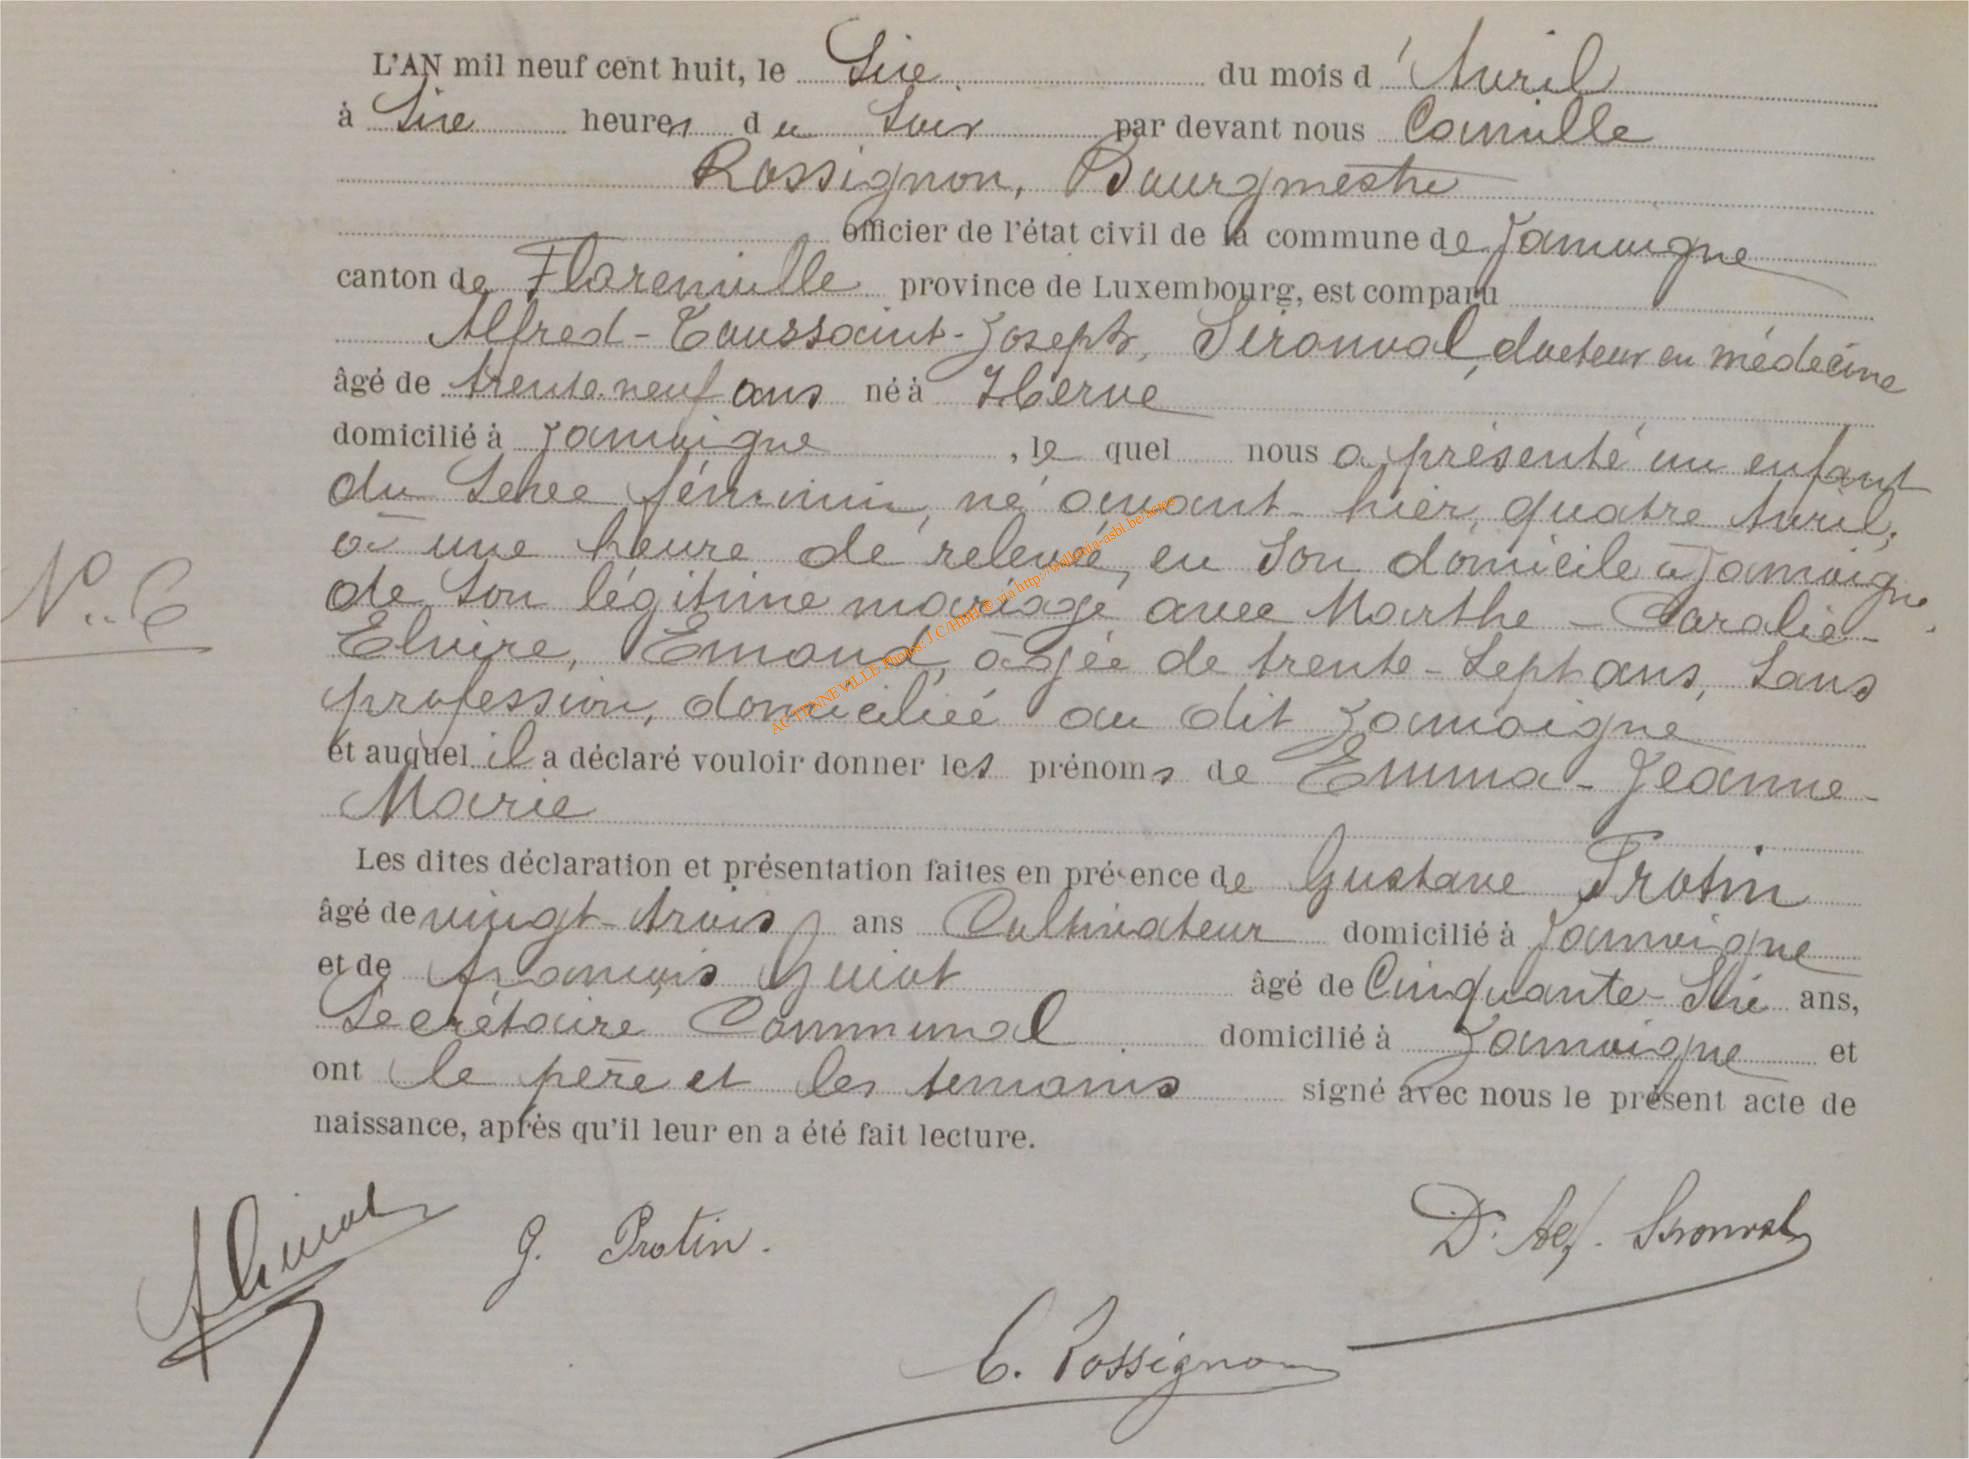 L'AN mil neuf cent huit, le Six du mois d'Avril
à Six heures du Soir par devant nous Camille
Rossignon, Bourgmestre
officier de l'état civil de la commune de Jamoigne
canton de Florenville province de Luxembourg, est comparu
Alfred-Toussaint-Joseph, Sironval, docteur en médecine
âgé de trente neuf ans né à Herve
domicilié à Jamoigne, le quel nous a présenté un enfant
du Sexe féminin, né avant-hier, quatre Avril,
à une heure de relevée, en Son domicile à Jamoigne,
de Son légitime mariage avec Marthe-Coralie-
Elvire, Emond, âgée de trente-Sept ans, Sans
profession, domiciliée au dit Jamoigne
et auquel il a déclaré vouloir donner les prénoms de Emma-Jeanne-
Marie
Les dites déclaration et présentation faites en présence de Gustave Protin
âgé de vingt-trois ans Cultivateur domicilié à Jamoigne
et de François Guiot âgé de Cinquante-Six ans,
Secrétaire Communal domicilié à Jamoigne et
ont le père et les témoins signé avec nous le présent acte de
naissance, après qu'il leur en a été fait lecture.
N° 6
AC TINNEVILLE Photos: J.C. via http://wallonia-asbl.be/actes
F Guiot
G. Protin.
Dr Alf. Sironval
C. Rossignon